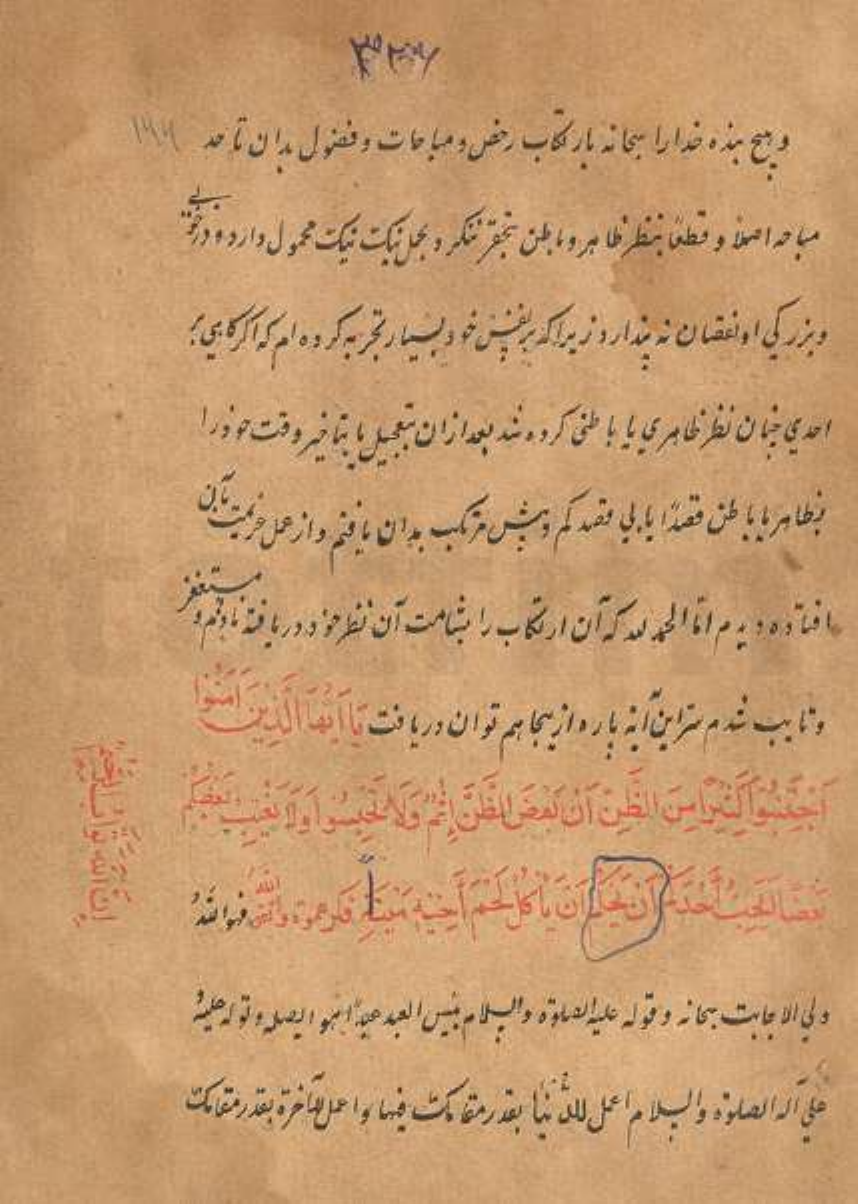 ۱۴۴
و هیچ بنده خدا را سبحانه بارتکاب رخص و مباحات و فضول بدان تا حد
مباحه اصلاً و قطعاً بنظر ظاهر و باطن بتحقیر ننگرد و بحمل نیک نیک محمول دارد و در خو بی
و بزرگی او نقصان نه پندارد زیرا که بر نفس خود بسیار تجربه کرده ام که اگر گاهی بر
احدی چنان نظر ظاهری یا باطنی کرده شد بعد ازان بتعجیل یا بتاخیر وقت خود را
بظاهر یا باطن قصدًا یا بی قصد کم و بیش مرتکب بدان یافتم و از عمل عزیمت بآن
افتاده دیدم اما الحمد لله که آن ارتکاب را بشامت آن نظر خود دریافته نادم و مستغفر
و تایب شدم سر این آیه پاره ازینجا هم توان دریافت يَا اَيُّهَا الَّذِينَ امَنُوا
اجْتَنِبُوا كَثِيرًا مِنَ الظَّنِّ اَنّ بَعْضَ الظَّنِّ اِثْمٌ وَلَا تَجَسَّسُوا وَلَا يَغْتَبْ بَعْضُكُمْ
بَعْضًا اَيُحِبُّ اَحَدَكُمْ اَنْ يَاْكُلَ لَحْمَ اَخِيْهِ مَيْتًا فكرهتموه واتقوا الله فهو الله
ان الله تواب رحيم
ولی الاجابت سبحانه و قوله علیه الصلوة والسلام بئس العبد عبدًا هو ایصله و قوله علیه و
علی آله الصلوة والسلام اعمل للدنیا بقدر مقامک فیها واعمل للآخرة بقدر مقامک